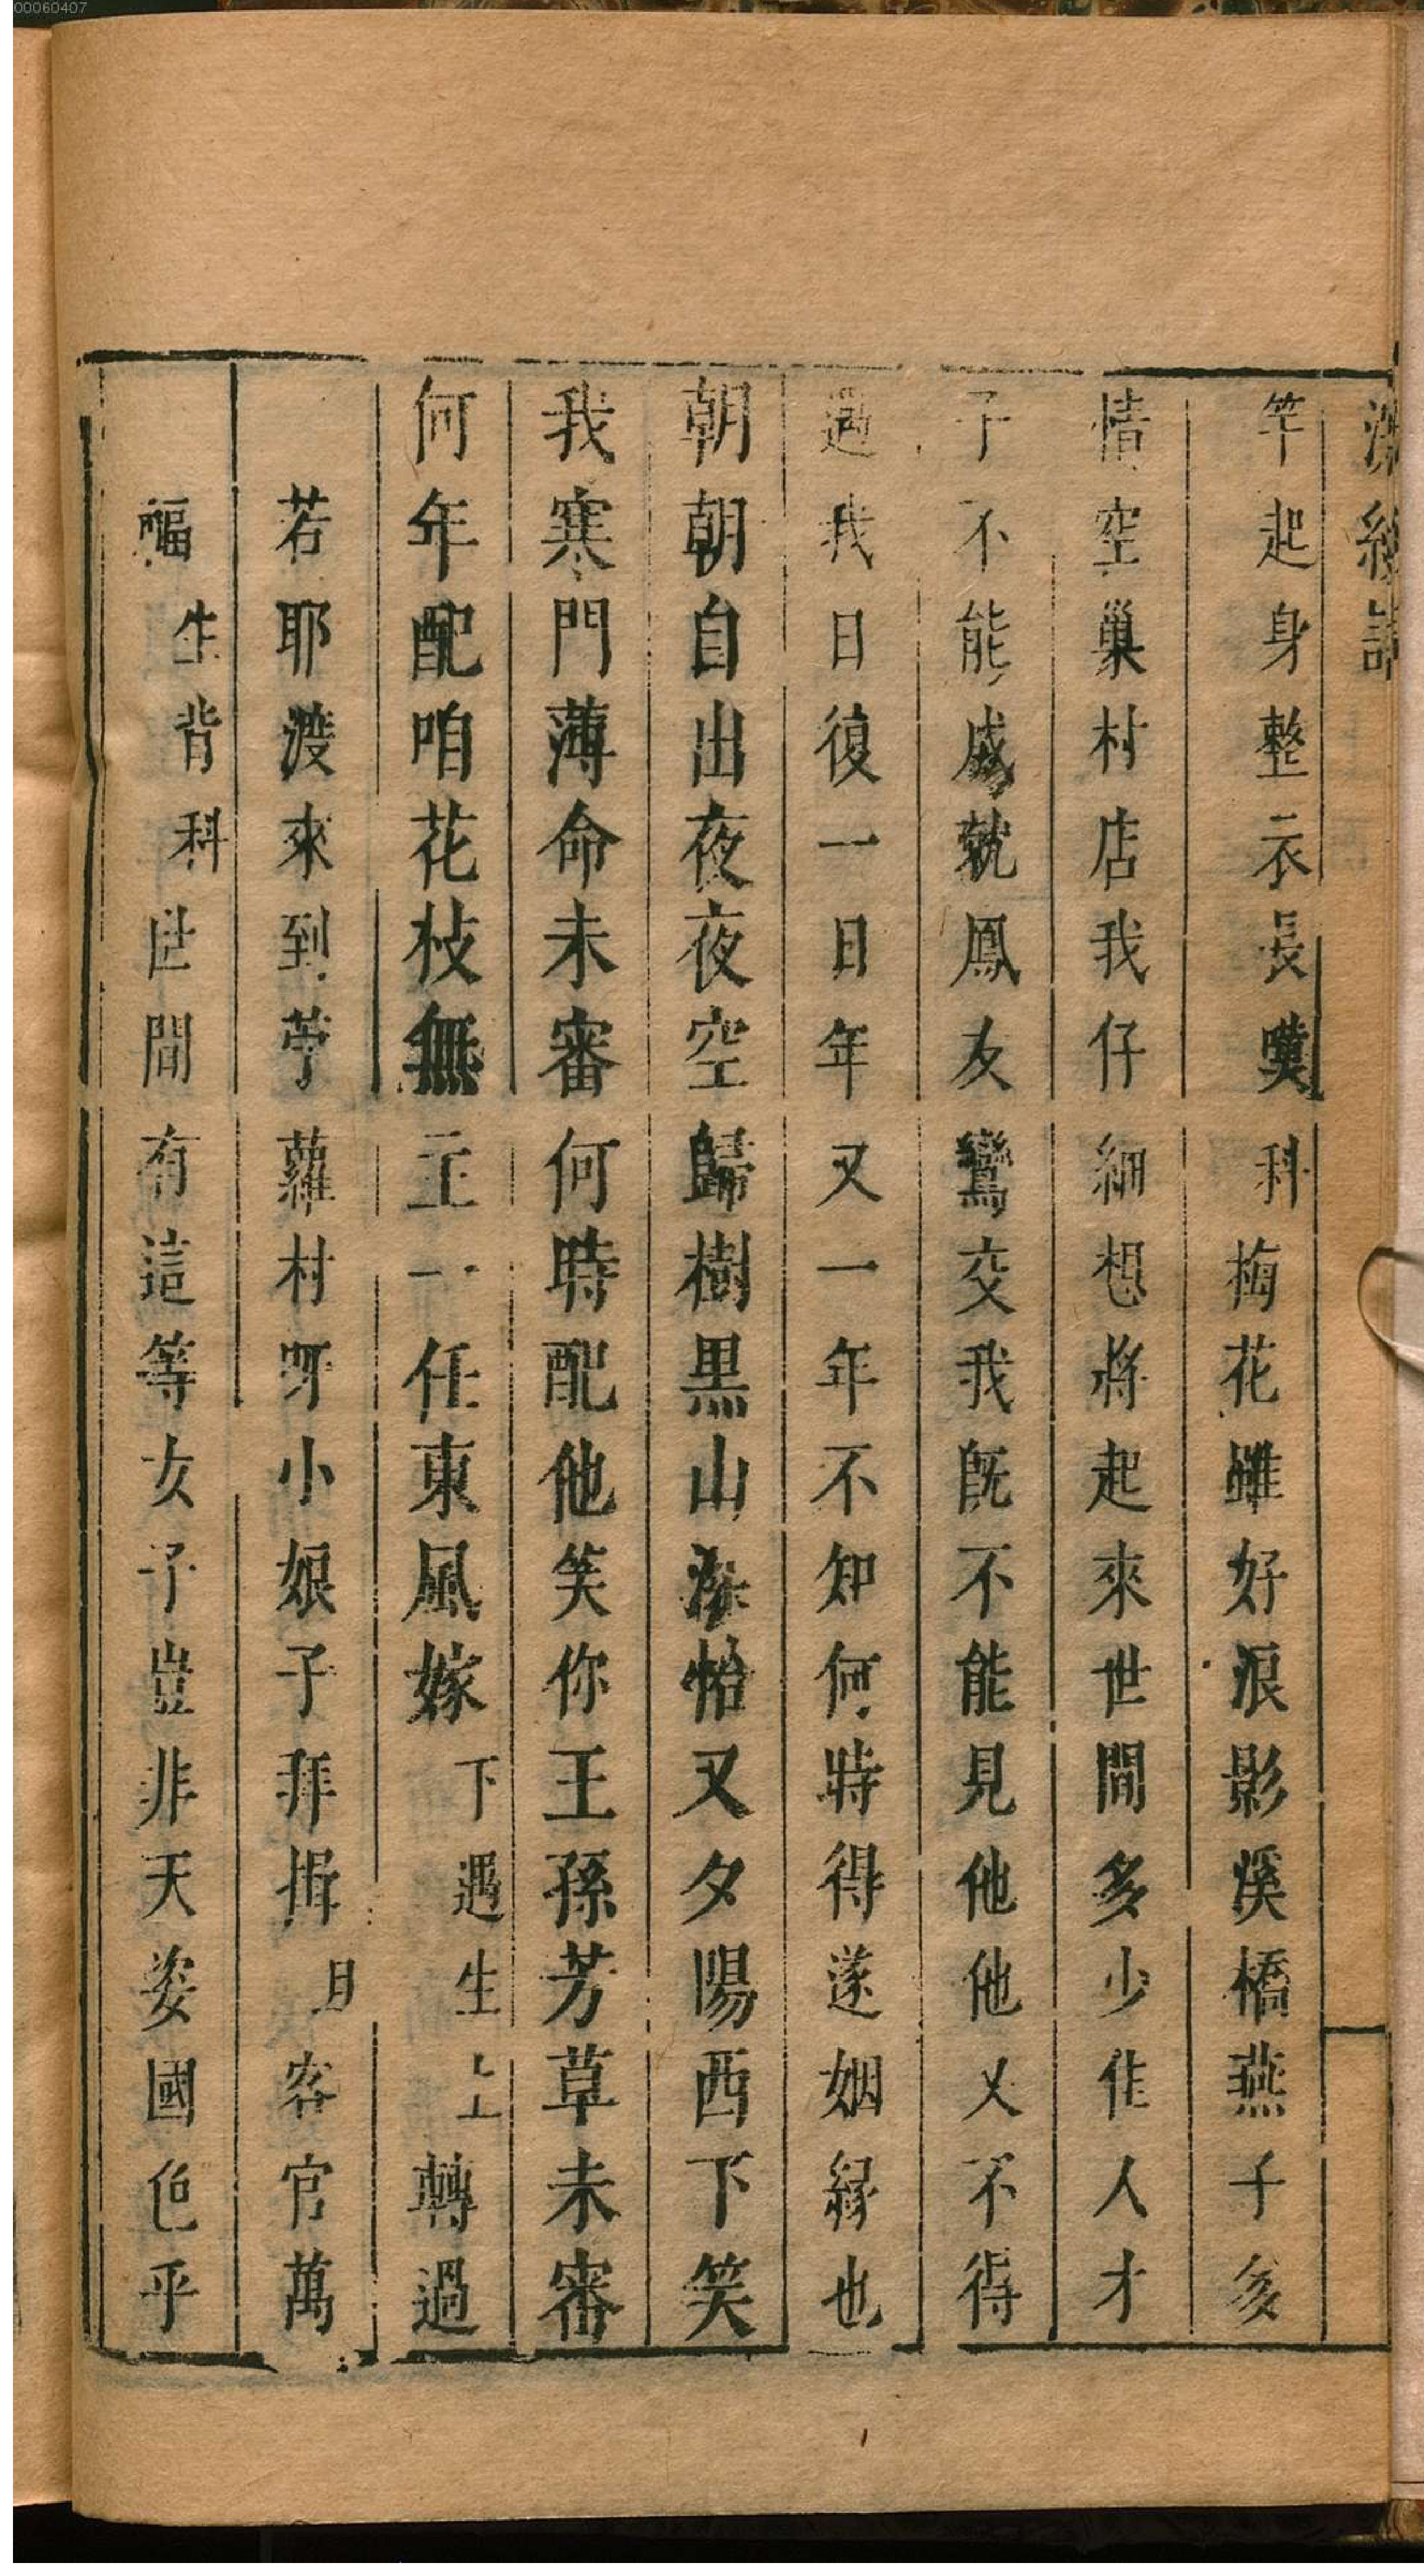 00060407
浣紗記
竿起身整衣長嘆科梅花雖好浪影溪橋燕子多
情空巢村店我仔細想將起來世間多少佳人才
子不能成就鳳友鸞交我旣不能見他他又不得
遇我日復一日年又一年不知何時得遂姻緣也
朝朝自出夜夜空歸樹黑山深怕又夕陽西下笑
我寒門薄命未審何時配他笑你王孫芳草未審
何年配咱花枝無主一任東風嫁下遇生上轉過
若耶渡來到苧蘿村呀小娘子拜揖旦客官萬
福生背科世間有這等女子豈非天姿國色乎